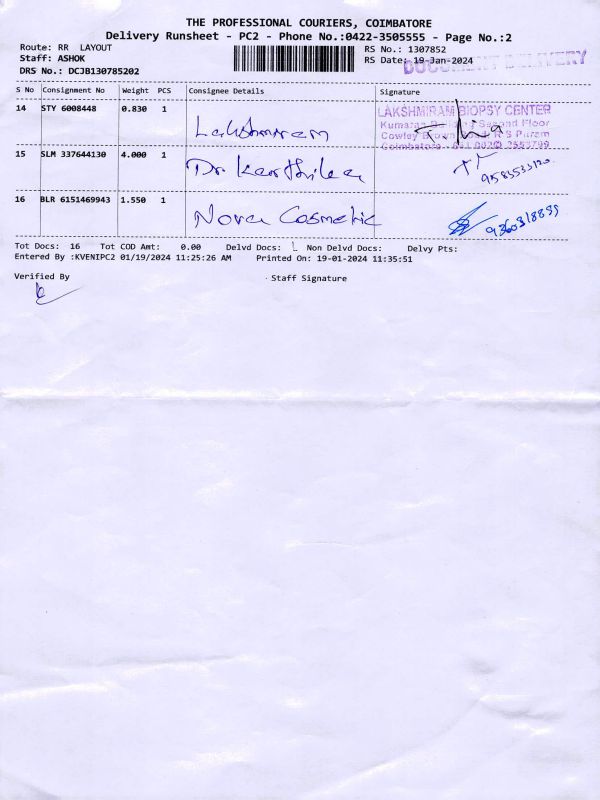 THE PROFESSIONAL COURIERS, COIMBATORE
Delivery Runsheet - PC2 - Phone No.:0422-3505555 - Page No.:2
Route: RR LAYOUT
Staff: ASHOK
DRS No.: DCJB130785202
RS No.: 1307852
RS Date: 19-Jan-2024
DOCUMENT DELIVERY
S No Consignment No Weight PCS Consignee Details Signature
14 STY 6008448 0.830 1 Lakshmiram
LAKSHMIRAM BIOPSY CENTER
Kumaran Second Floor
Cowley Brown R S Puram
Coimbatore
15 SLM 337644130 4.000 1 Dr Karthika
16 BLR 6151469943 1.550 1 Nova Cosmetic
Tot Docs: 16 Tot COD Amt: 0.00 Delvd Docs: Non Delvd Docs: Delvy Pts:
Entered By :KVENIPC2 01/19/2024 11:25:26 AM Printed On: 19-01-2024 11:35:51
Verified By Staff Signature